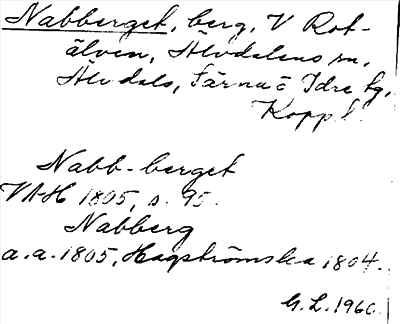 Nabberget, berg, V Rot-
älven, Älvdalens sn,
Älvdals, Särna o Idre tg,
Kopp. l.
Nabb-berget
VAH 1805, s. 95.
Nabberg
a. a. 1805, Hagströmska 1804.
G. L. 1960.